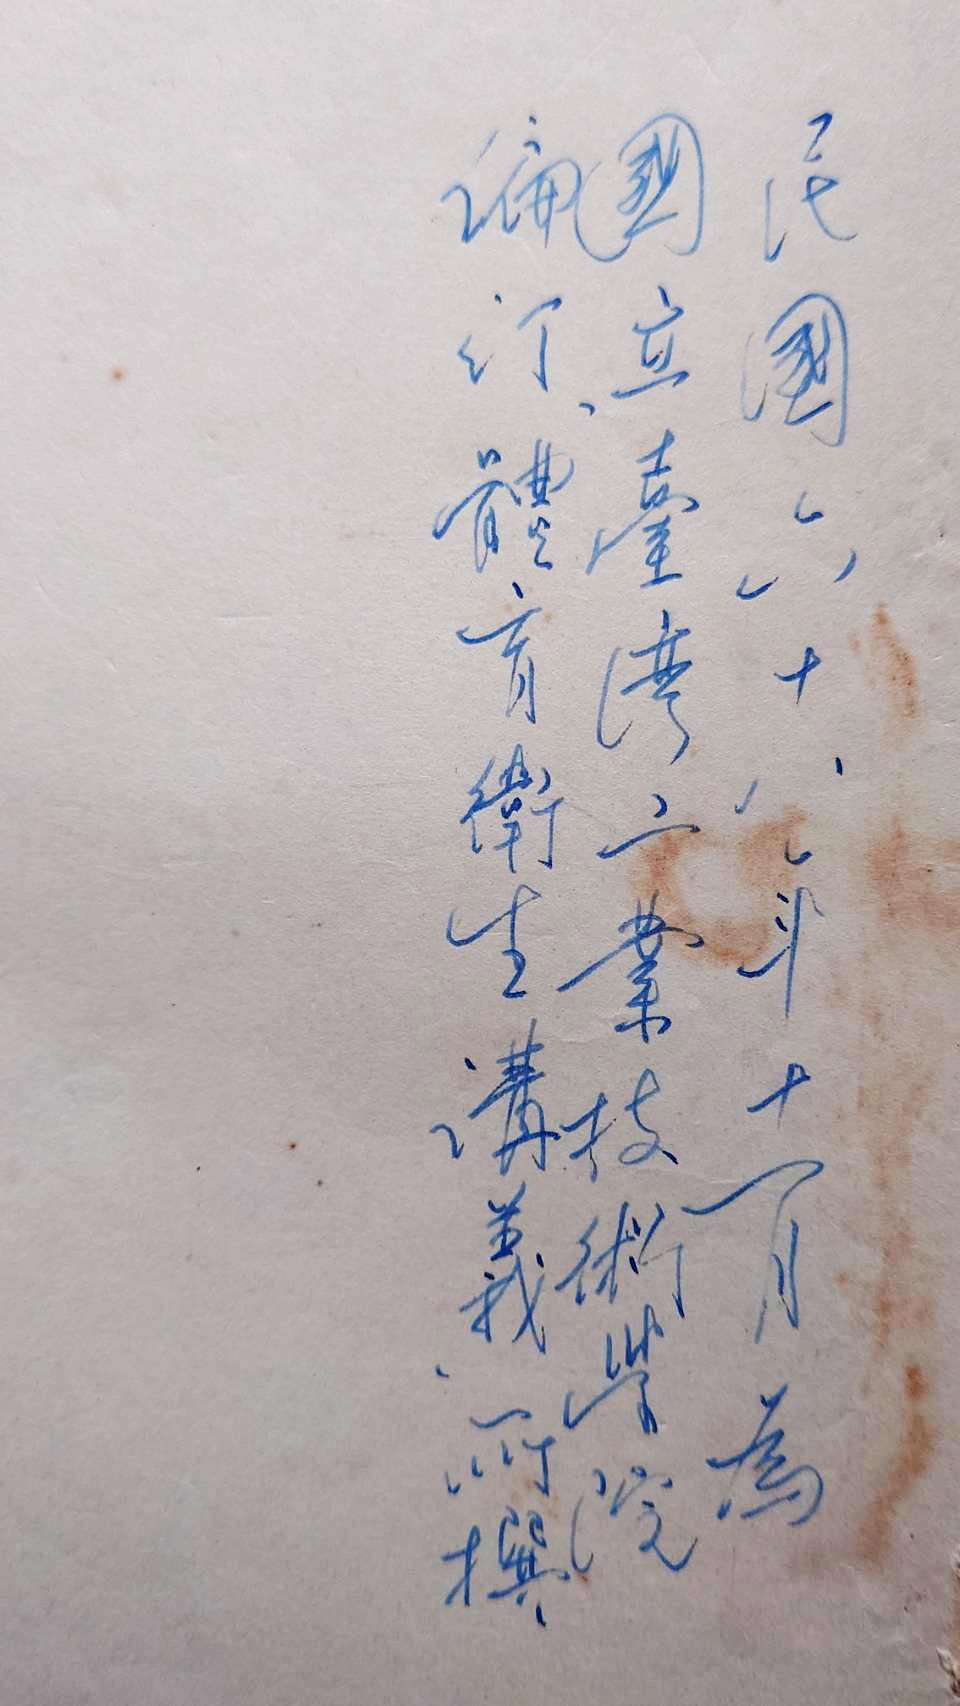 民國六十八年十一月為
國立臺灣工業技術學院
編訂體育衛生講義所撰